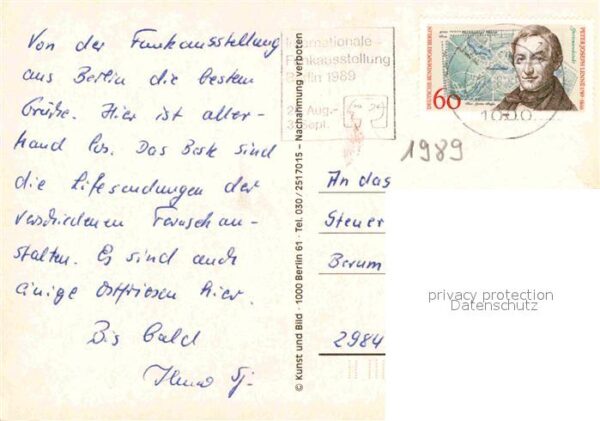 Von der Funkausstellung
aus Berlin die besten
Grüße. Hier ist aller-
hand los. Das Beste sind
die Lifesendungen der
verschiedenen Fernsehan-
stalten. Es sind auch
einige Ostfriesen hier.
Bis bald
© Kunst und Bild · 1000 Berlin 61 · Tel. 030 / 2517015 – Nachahmung verboten
Internationale
Funkausstellung
Berlin 1989
Aug.-
Sept.
60
DEUTSCHE BUNDESPOST BERLIN
PETER JOSEPH LENNÉ 1789-1866
1000
1989
An das
Steuer
Berum
2984
privacy protection
Datenschutz